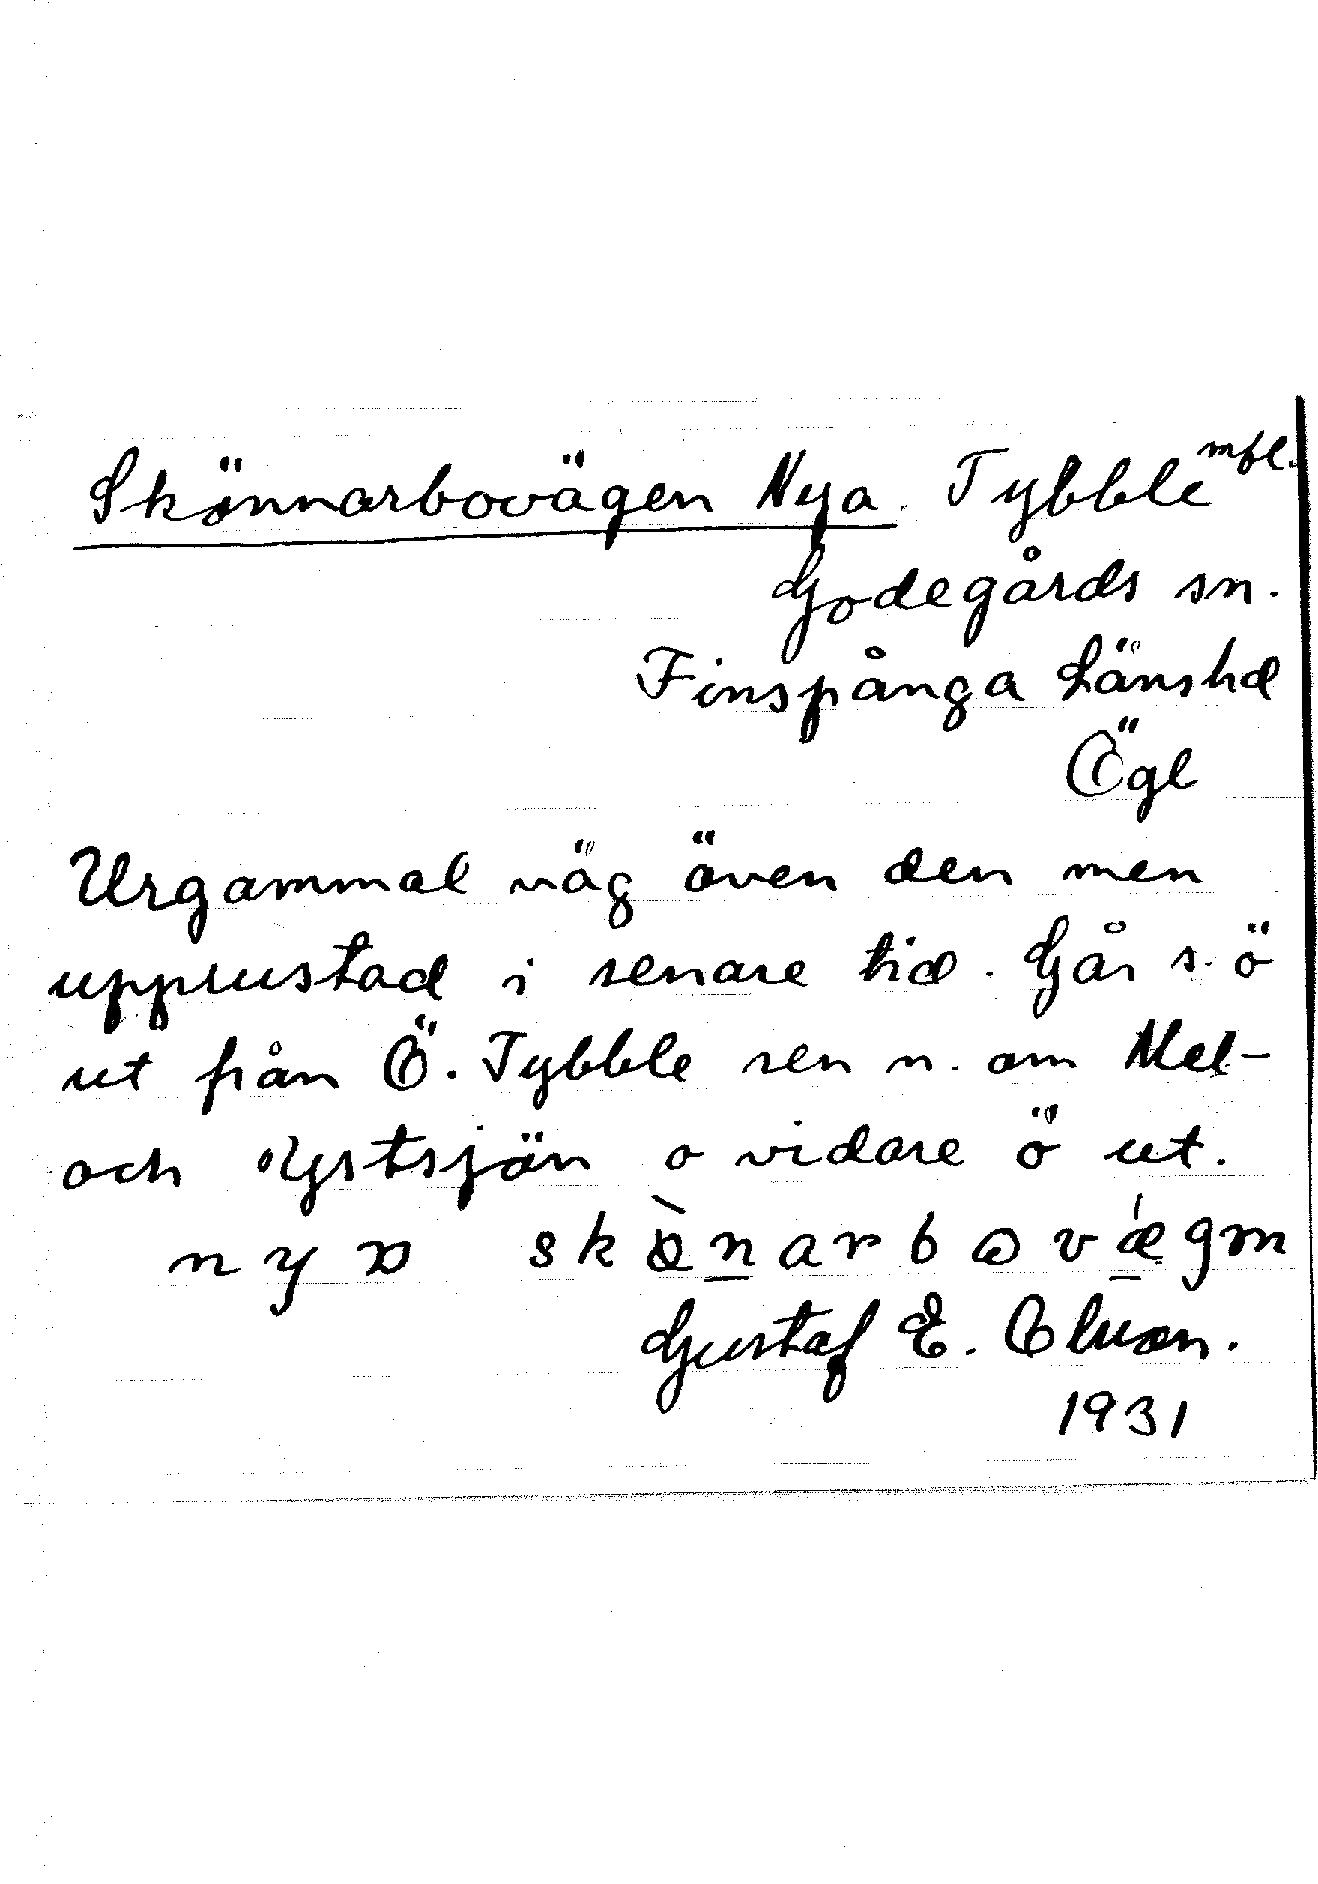 Skönnarbovägen Nya. Tybble mfl.
Godegårds sn.
Finspånga Länshd
Ögl
Urgammal väg även den men
upprustad i senare tid. Går s. ö
ut från Ö. Tybble sen n. om Mel-
och Ystsjön o vidare ö ut.
nya
Gustaf E.
1931